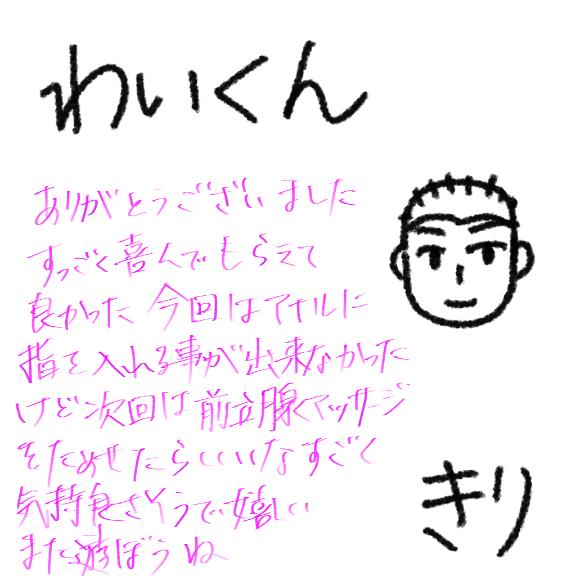 わいくん
ありがとうございました
すっごく喜んでもらえて
良かった 今回はアナルに
指を入れる事が出来なかった
けど次回は前立腺マッサージ
をためせたらいいなすごく
気持良さそうで嬉しい
また遊ぼうね
きり